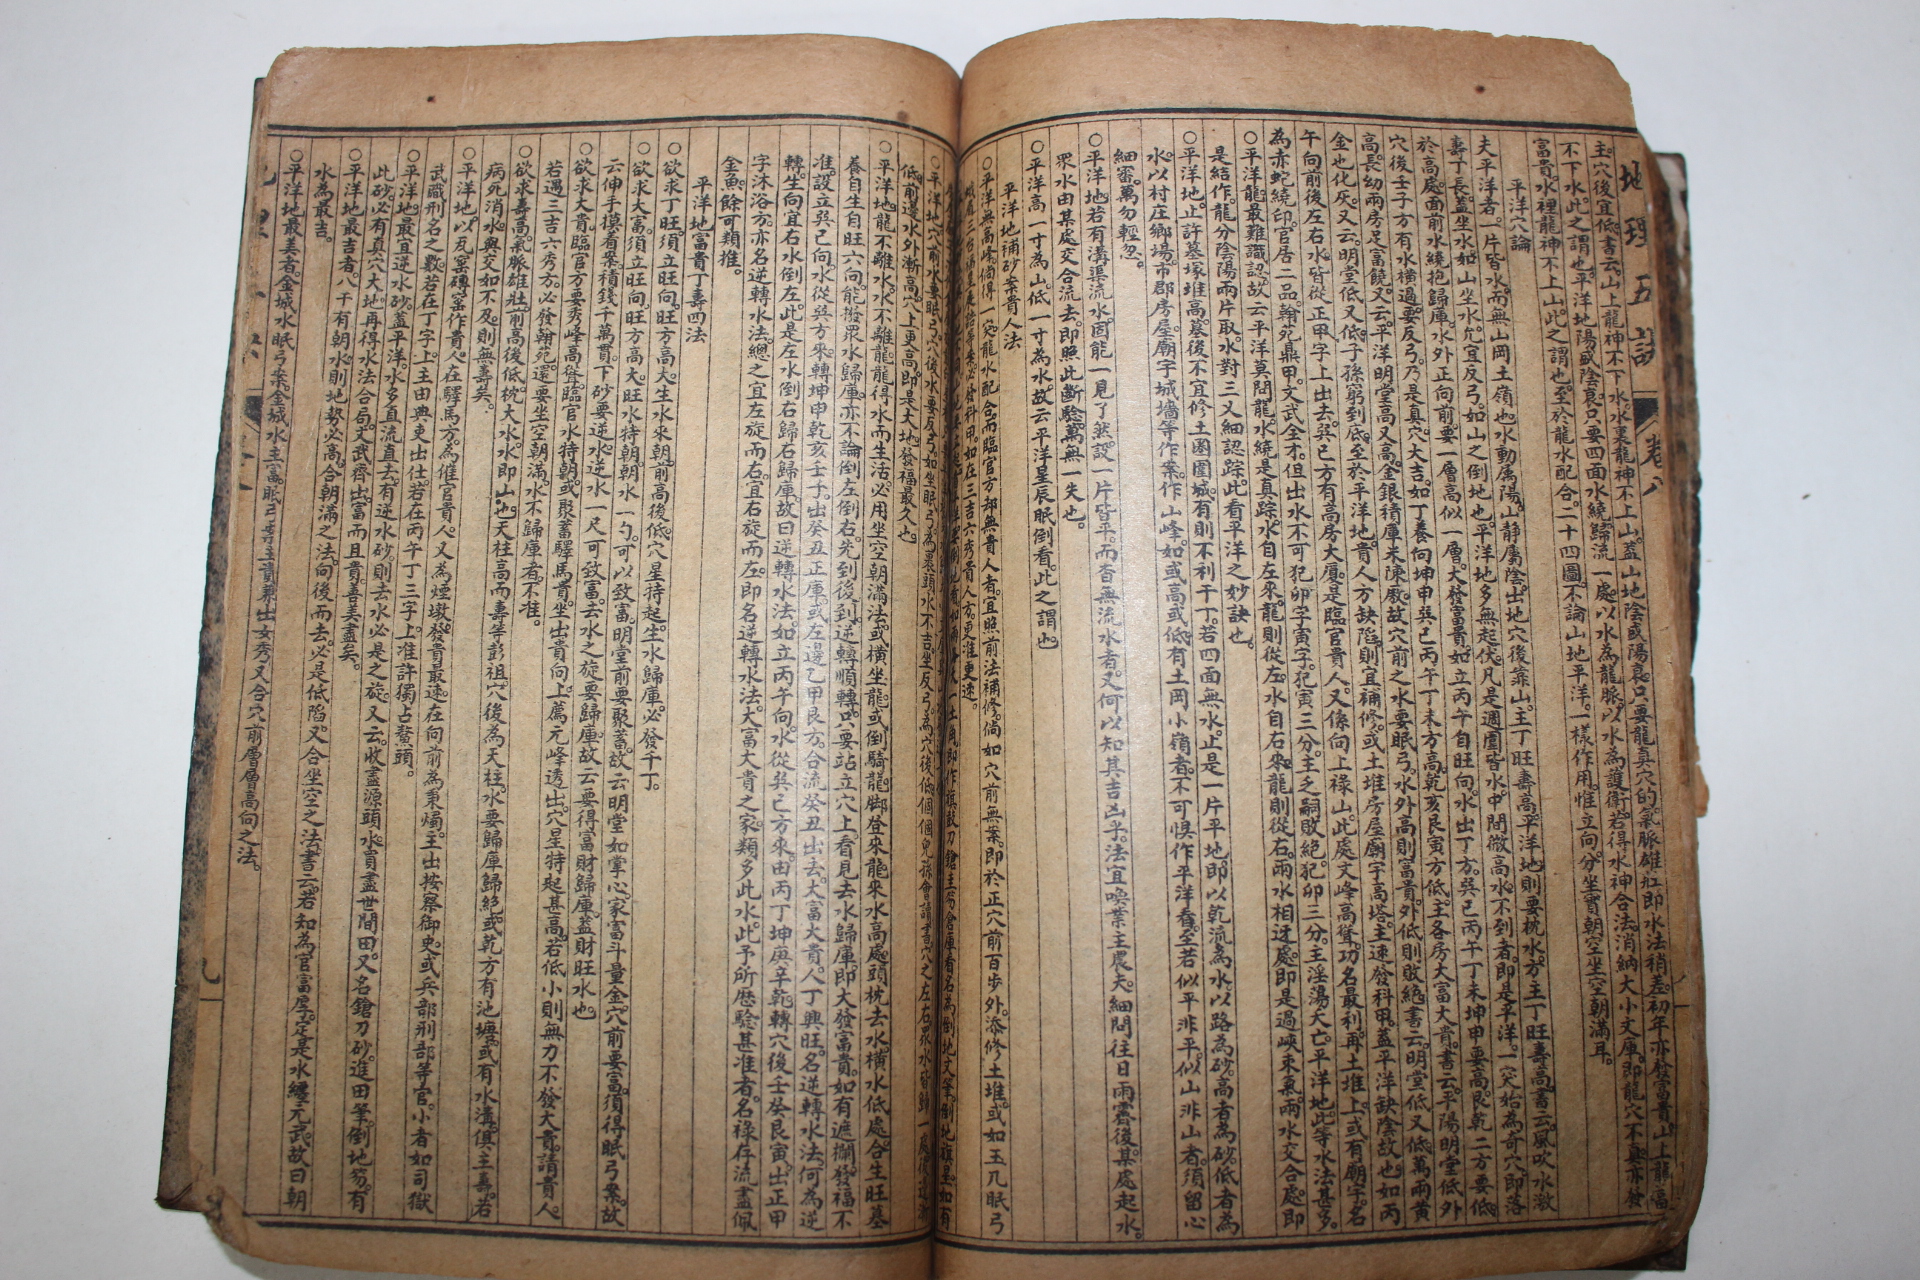 地理五訣 卷八
主。穴後宜低。書云。山上龍神不下水。水裏龍神不上山。蓋山地陰或陽衰。只要龍真穴的。氣脈雄壯。即水法稍差。初年亦發富貴。山上龍神
不下水。此之謂也。平洋地陽或陰衰。只要四面水繞。歸流一處。以水為龍脈。以水為護衛。若得水神合法。消納大小文庫。即龍穴不真。亦發
富貴。水裡龍神不上山。此之謂也。至於龍水配合。二十四圖。不論山地平洋。一樣作用。惟立向。分坐實朝空。坐空朝滿耳。
平洋穴論
夫平洋者。一片皆水。而無山岡土嶺也。水動屬陽。山靜屬陰。山地穴後靠山。主丁旺壽高。平洋地則要枕水。方主丁旺壽高。書云。風吹水激
壽丁長。蓋坐水如山坐水。允宜反弓。如山之倒地也。平洋地多無起伏。凡是週圍皆水。中間微高。水不到者。即是平洋。一突始為奇穴。即落
於高處。面前水繞抱歸庫。水外正向前。要一層高似一層。大發富貴。如立丙午自旺向。水出丁方。巽巳丙午丁未坤申要高。艮乾二方要低。
穴後壬子方有水橫過。要反弓。乃是真穴大吉。如丁養向坤申巽巳丙午丁未方高。乾亥艮寅方低。主各房大富大貴。書云。平陽明堂低外
高。長幼兩房足富饒。又云。平洋明堂高又高。金銀積庫米陳廒。故穴前之水要眠弓。水外高則富貴。外低則敗絕。書云。明堂低又低。萬兩黃
金也化灰。又云。明堂低又低。子孫窮到底。至於平洋地貴人方缺陷。則宜補修。或土堆房屋廟宇高塔。主速發科甲。蓋平洋缺陰故也。如丙
午向前後左右水皆從正甲字上出去。巽巳方有高房大厦。是臨官貴人。又係向上祿山。此處文峰高聳。功名最利。再土堆上或有廟宇。名
為赤蛇繞印。官居二品。翰苑鼎甲。文武全才。但出水不可犯卯字寅字。犯寅三分。主乏嗣敗絕。犯卯三分。主淫蕩夭亡。平洋地。此等水法甚多。
○平洋龍最難識認。故云平洋莫問龍。水繞是真踪。水自左來。龍則從左。水自右來。龍則從右。兩水相迂處。即是過峽束氣。兩水交合處。即
是結作。龍分陰陽兩片取。水對三叉細認踪。此看平洋之妙訣也。
○平洋地。止許墓塚堆高。墓後不宜修土圈圍城。有則不利于丁。若四面無水。止是一片平地。即以乾流為水。以路為砂。高者為砂。低者為
水。以村庄鄉場市郡房屋廟宇城墻等作案。作山峰。如或高或低。有土岡小嶺者。不可悞作平洋看。至若似平非平。似山非山者。須留心
細審。萬勿輕忽。
○平洋地若有溝渠流水。固能一見了然。設一片皆平。而杳無流水者。又何以知其吉凶乎。法宜喚業主農夫。細問往日雨霽後。某處起水。
眾水由某處交合流去。即照此斷驗。萬無一失也。
○平洋高一寸為山。低一寸為水。故云平洋星辰眠倒看。此之謂也。
平洋地補砂案貴人法
○平洋無高峰。倘得一突。龍水配合。而臨官方却無貴人者。宜照前法補修。倘如穴前無案。即於正穴前百步外。添修土堆。或如玉几眠弓
○平洋地。穴前水要眠弓。穴後水要反弓。如坐眠弓。為裹頭水不吉。坐反弓。為穴後低。個個兒孫會讀書。穴之左右眾水皆歸一處。後邊漸
低。前邊水外漸高。穴上更高。即是大地。發福最久也。
○平洋地。龍不離水。水不離龍。龍得水而生活。必用坐空朝滿法。或橫坐龍。或倒騎龍。脚登來龍。來水高處。頭枕去水橫水低處。合生旺墓
養自生自旺六向。能撥眾水歸庫。亦不論倒左倒右。先到後到。逆轉順轉。只要站立穴上。看見去水歸庫。即大發富貴。如有遮攔。發福不
准。設立巽巳向。水從巽方來。轉坤申乾亥壬子。出癸丑正庫。或左邊乙甲艮方。合流癸丑出去。大富大貴。人丁興旺。名逆轉水法。何為逆
轉。生向宜右水倒左。此是左水倒右歸庫。故曰逆轉水法。如立丙午向。水從巽巳方來。由丙丁坤庚辛乾。轉穴後壬癸艮寅。出正甲
字沐浴方。亦名逆轉水法。總之宜左旋而右。宜右旋而左。即名逆轉水法。大富大貴之家。類多此水。此予所歷驗甚准者。名祿存流盡佩
金魚。餘可類推。
平洋地富貴丁壽四法
欲求丁旺。須立旺向。旺方高大。生水來朝。前高後低。穴星特起。生水歸庫。必發千丁。
欲求大富。須立旺向。旺方高大。旺水特朝。朝水一勺。可以致富。明堂前要聚蓄。故云明堂如掌心。家富斗量金。穴前要富。須得眠弓案。故
云伸手摸着案。積錢千萬貫。下砂要逆水。逆水一尺可致富。去水之旋要歸庫。故云要得富。財歸庫。蓋財旺水也。
欲求大貴。臨官方要秀峰高聳。臨官水特朝。或聚蓄驛馬貴。坐出貴。向上薦元峰透出。穴星特起甚高。若低小則無力不發大貴。請貴人。
若遇三吉六秀方。必發翰苑。還要坐空朝滿。水不歸庫者。不准。
欲求壽高。氣脈雄壯。前高後低。枕大水。水即山也。天柱高而壽等彭祖。穴後為天柱。水要歸庫歸絕。或乾方有池塘。或有水溝。俱主壽。若
病死消水。與交如不及。則無壽矣。
○平洋地。以瓦窑磚窑作貴人。在驛馬方。為催官貴人。又為煙墩。發貴最速。在向前為秉燭。主出按察御史。或兵部刑部等官。小者如司獄
武職刑名之數。若在丁字上。主由典吏出仕。若在丙午丁三字上。准許獨占鰲頭。
○平洋地。最宜逆水砂。蓋平洋水多直流直去。有逆水砂。則去水必是之旋。又云。收盡源頭水。買盡世間田。又名鎗刀砂。進田筆。倒地笏。有
此砂。必有真穴大地。再得水法合局。文武齊出。富而且貴。善美盡矣。
○平洋地最吉者。八干有朝水。則地勢必高。合朝滿之法。向後而去。必是低陷。又合坐空之法。書云。若知為官富厚。定是水纏元武。故曰朝
水為最吉。
○平洋地最美者。金城水眠弓案。金城水主富。眠弓案主貴。兼出女秀。又合穴前層層高向之法。